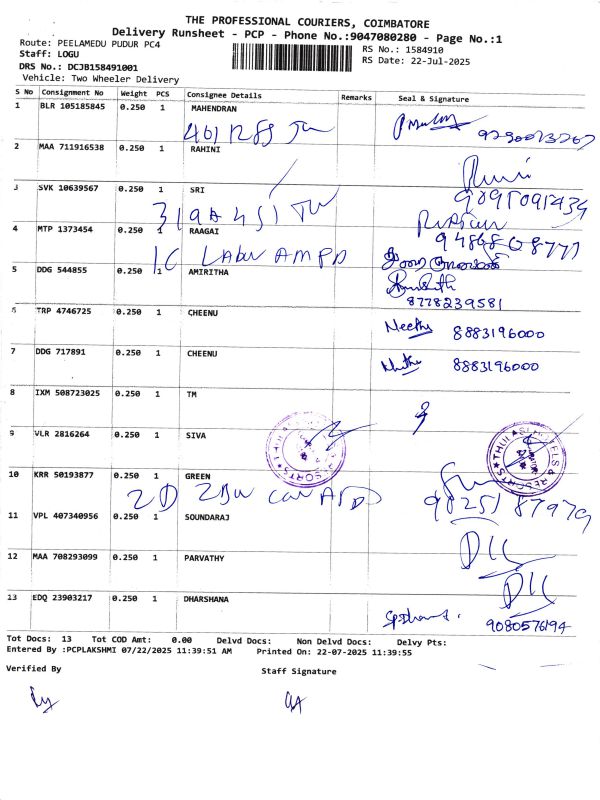 THE PROFESSIONAL COURIERS, COIMBATORE
Delivery Runsheet - PCP - Phone No.:9047080280 - Page No.:1
Route: PEELAMEDU PUDUR PC4
RS No.: 1584910
Staff: LOGU
RS Date: 22-Jul-2025
DRS No.: DCJB158491001
Vehicle: Two Wheeler Delivery
S No Consignment No Weight PCS Consignee Details Remarks Seal & Signature
1 BLR 105185845 0.250 1 MAHENDRAN
2 MAA 711916538 0.250 1 RAHINI
3 SVK 10639567 0.250 1 SRI
4 MTP 1373454 0.250 1 RAAGAI
5 DDG 544855 0.250 1 AMIRITHA
8778239581
6 TRP 4746725 0.250 1 CHEENU Neethu 8883196000
7 DDG 717891 0.250 1 CHEENU 8883196000
8 IXM 508723025 0.250 1 TM
9 VLR 2816264 0.250 1 SIVA
10 KRR 50193877 0.250 1 GREEN
11 VPL 407340956 0.250 1 SOUNDARAJ
12 MAA 708293099 0.250 1 PARVATHY
13 EDQ 23903217 0.250 1 DHARSHANA
9080576194
Tot Docs: 13 Tot COD Amt: 0.00 Delvd Docs: Non Delvd Docs: Delvy Pts:
Entered By :PCPLAKSHMI 07/22/2025 11:39:51 AM Printed On: 22-07-2025 11:39:55
Verified By Staff Signature